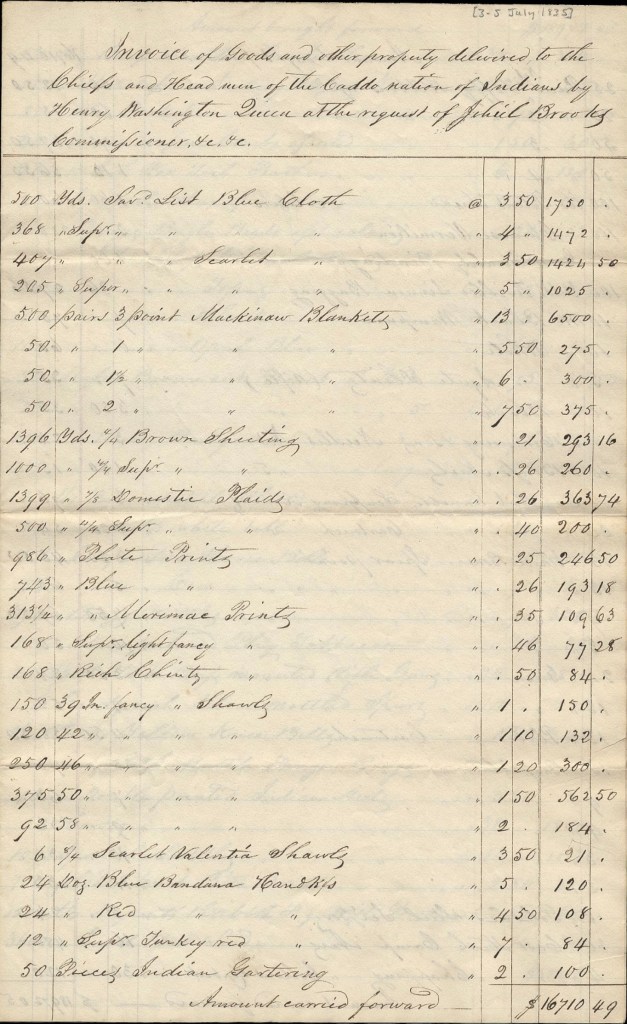 [3-5 July 1835]
Invoice of Goods and other property delivered to the
Chiefs and Head men of the Caddo nation of Indians by
Henry Washington Queen at the request of Jehiel Brooks
Commissioner, &c. &c.
500 Yds. Savd. List Blue Cloth @ 3 50 1750 .
368 " Supr. " " " 4 " 1472 .
407 " " " Scarlet " " 3 50 1424 50
205 " Super " " " " 5 " 1025 .
500 pairs 3 point Mackinaw Blankets " 13 . 6500 .
50 " 1 " " " " 5 50 275 .
50 " 1½ " " " " 6 . 300 .
50 " 2 " " " " 7 50 375 .
1396 Yds. 4/4 Brown Sheeting " . 21 293 16
1000 " 4/4 Supr. " " " . 26 260 .
1399 " 7/8 Domestic Plaids " . 26 363 74
500 " 4/4 Supr. " " . 40 200 .
986 " Plate Prints " . 25 246 50
743 " Blue " " . 26 193 18
313¼ " " Merimac Prints " . 35 109 63
168 " Supr. light fancy " " . 46 77 28
168 " Rich Chintz " " . 50 84 .
150 39 In. fancy " Shawls " 1 . 150 .
120 42 " " " " " 1 10 132 .
250 46 " " " " " 1 20 300 .
375 50 " " " " " 1 50 562 50
92 58 " " " " " 2 . 184 .
6 6/4 Scarlet Valentia Shawls " 3 50 21 .
24 Doz. Blue Bandana Handkfs " 5 . 120 .
24 " Red " " " 4 50 108 .
12 " Supr. Turkey red " " 7 . 84 .
50 Pieces Indian Gartering " 2 . 100 .
Amount carried forward — $ 16710 49